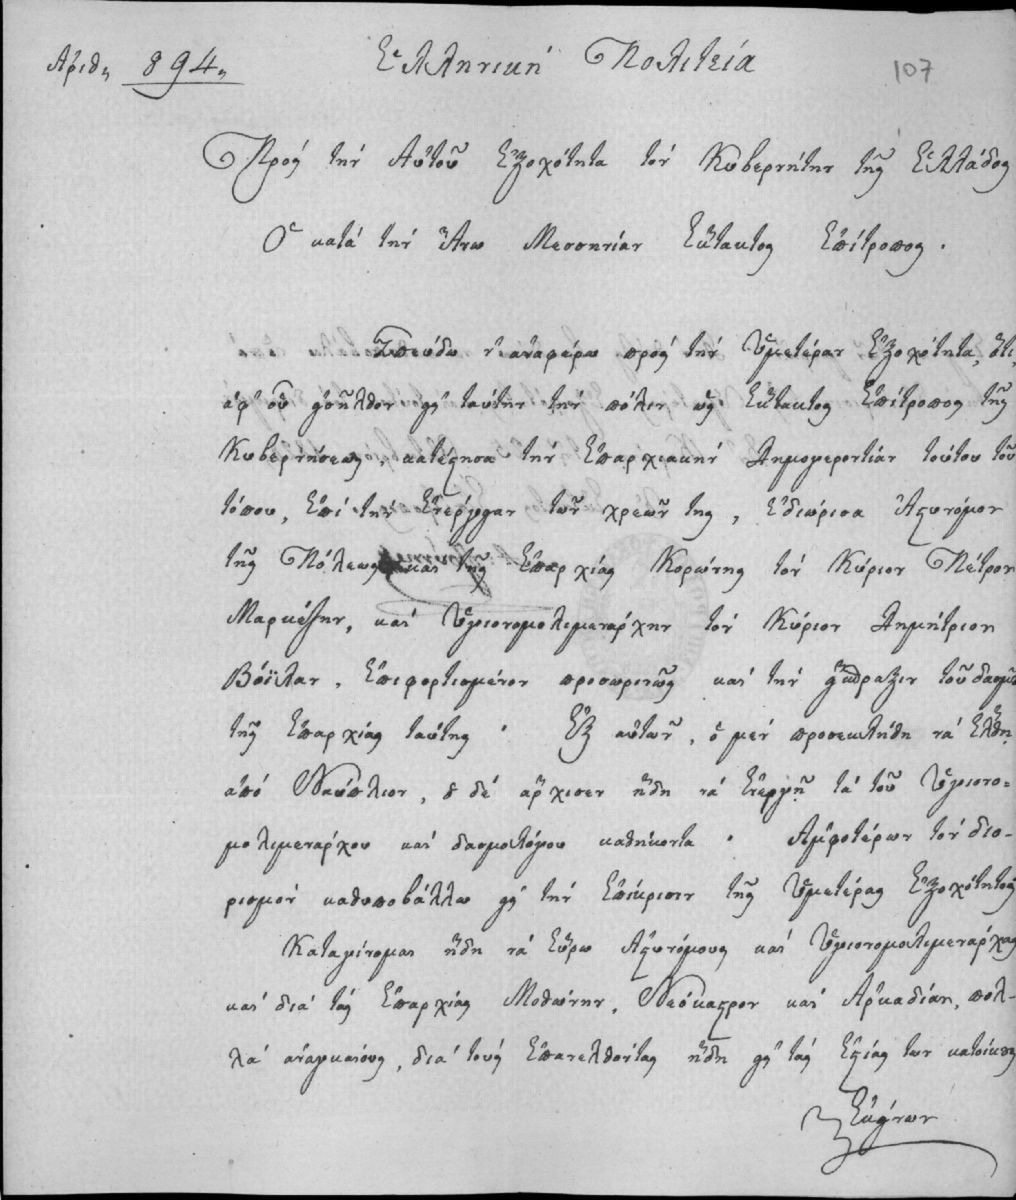 Ἀριθ. 894. Ἑλληνικὴ Πολιτεία 107
Πρὸς τὴν Αὐτοῦ Ἐξοχότητα τὸν Κυβερνήτην τῆς Ἑλλάδος
Ὁ κατὰ τὴν Ἄνω Μεσσηνίαν Ἔκτακτος Ἐπίτροπος.
Σπεύδω ν' ἀναφέρω πρὸς τὴν Ὑμετέραν Ἐξοχότητα, ὅτι,
ἀφ' οὗ εἰσῆλθον εἰς ταύτην τὴν πόλιν ὡς Ἔκτακτος Ἐπίτροπος τῆς
Κυβερνήσεως, κατέστησα τὴν Ἐπαρχιακὴν Δημογεροντίαν τούτου τοῦ
τόπου, ἐπὶ τὴν ἐνέργειαν τῶν χρεῶν της, ἐδιώρισα Ἀστυνόμον
τῆς Πόλεως καὶ τῆς Ἐπαρχίας Κορώνης τὸν Κύριον Πέτρον
Μαρκέζην, καὶ Ὑγειονομολιμενάρχην τὸν Κύριον Δημήτριον
Βόϊλαν, ἐπιφορτισμένον προσωρινῶς καὶ τὴν εἴσπραξιν τοῦ δασμοῦ
τῆς Ἐπαρχίας ταύτης· Ἐξ αὐτῶν, ὁ μὲν προσεκλήθη νὰ ἔλθῃ
ἀπὸ Ναύπλιον, ὁ δὲ ἄρχισεν ἤδη νὰ ἐνεργῇ τὰ τοῦ Ὑγειονο-
μολιμενάρχου καὶ δασμολόγου καθήκοντα. Ἀμφοτέρων τὸν διο-
ρισμὸν καθυποβάλλω εἰς τὴν ἐπίκρισιν τῆς Ὑμετέρας Ἐξοχότητος
Καταγίνομαι ἤδη νὰ εὕρω Ἀστυνόμους καὶ Ὑγειονομολιμενάρχας
καὶ διὰ τὰς Ἐπαρχίας Μοθώνην, Νεόκαστρον καὶ Ἀρκαδίαν, πολ-
λὰ ἀναγκαίους, διὰ τοὺς ἐπανελθόντας ἤδη εἰς τὰς ἑστίας των κατοίκους